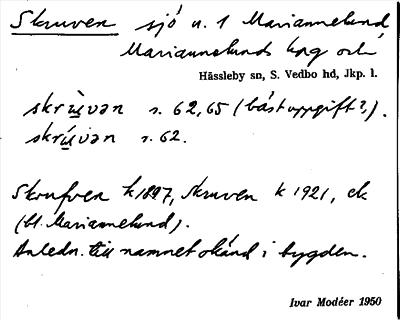 Skruven sjö n. 1 Mariannelund,
Mariannelunds kpg och
Hässleby sn, S. Vedbo hd, Jkp. l.
skrùvən s. 62, 65 (bäst uppgift?).
skrúvən s. 62.
Skrufven k 1897, Skruven k 1921, ek
(bl. Mariannelund).
Anledn. till namnet okänd i bygden.
Ivar Modéer 1950